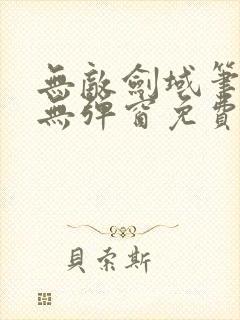 無敵劍域筆
無彈窗免費
貝索斯